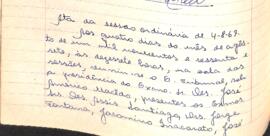 Ata da sessão ordinária de 4-8-69.
Aos quatro dias do mês de agôs-
to de um mil novecentos e sessenta e
nove, às dezessete horas, na sala das
sessões, reuniu-se o E. Tribunal, sob
a presidência do Exmo. Sr. Des. José
Américo Macedo, presentes os Exmos
Srs. Des. Assis Santiago, Des. Jorge
Fontana, Jacomino Inacarato, José